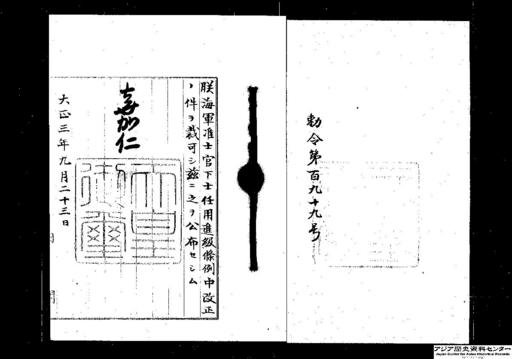 勅令第百九十九号
朕海軍准士官下士任用進級條例中改正
ノ件ヲ裁可シ茲ニ之ヲ公布セシム
嘉仁
大正三年九月二十三日
天皇御璽
アジア歴史資料センター
Japan Center for Asian Historical Records